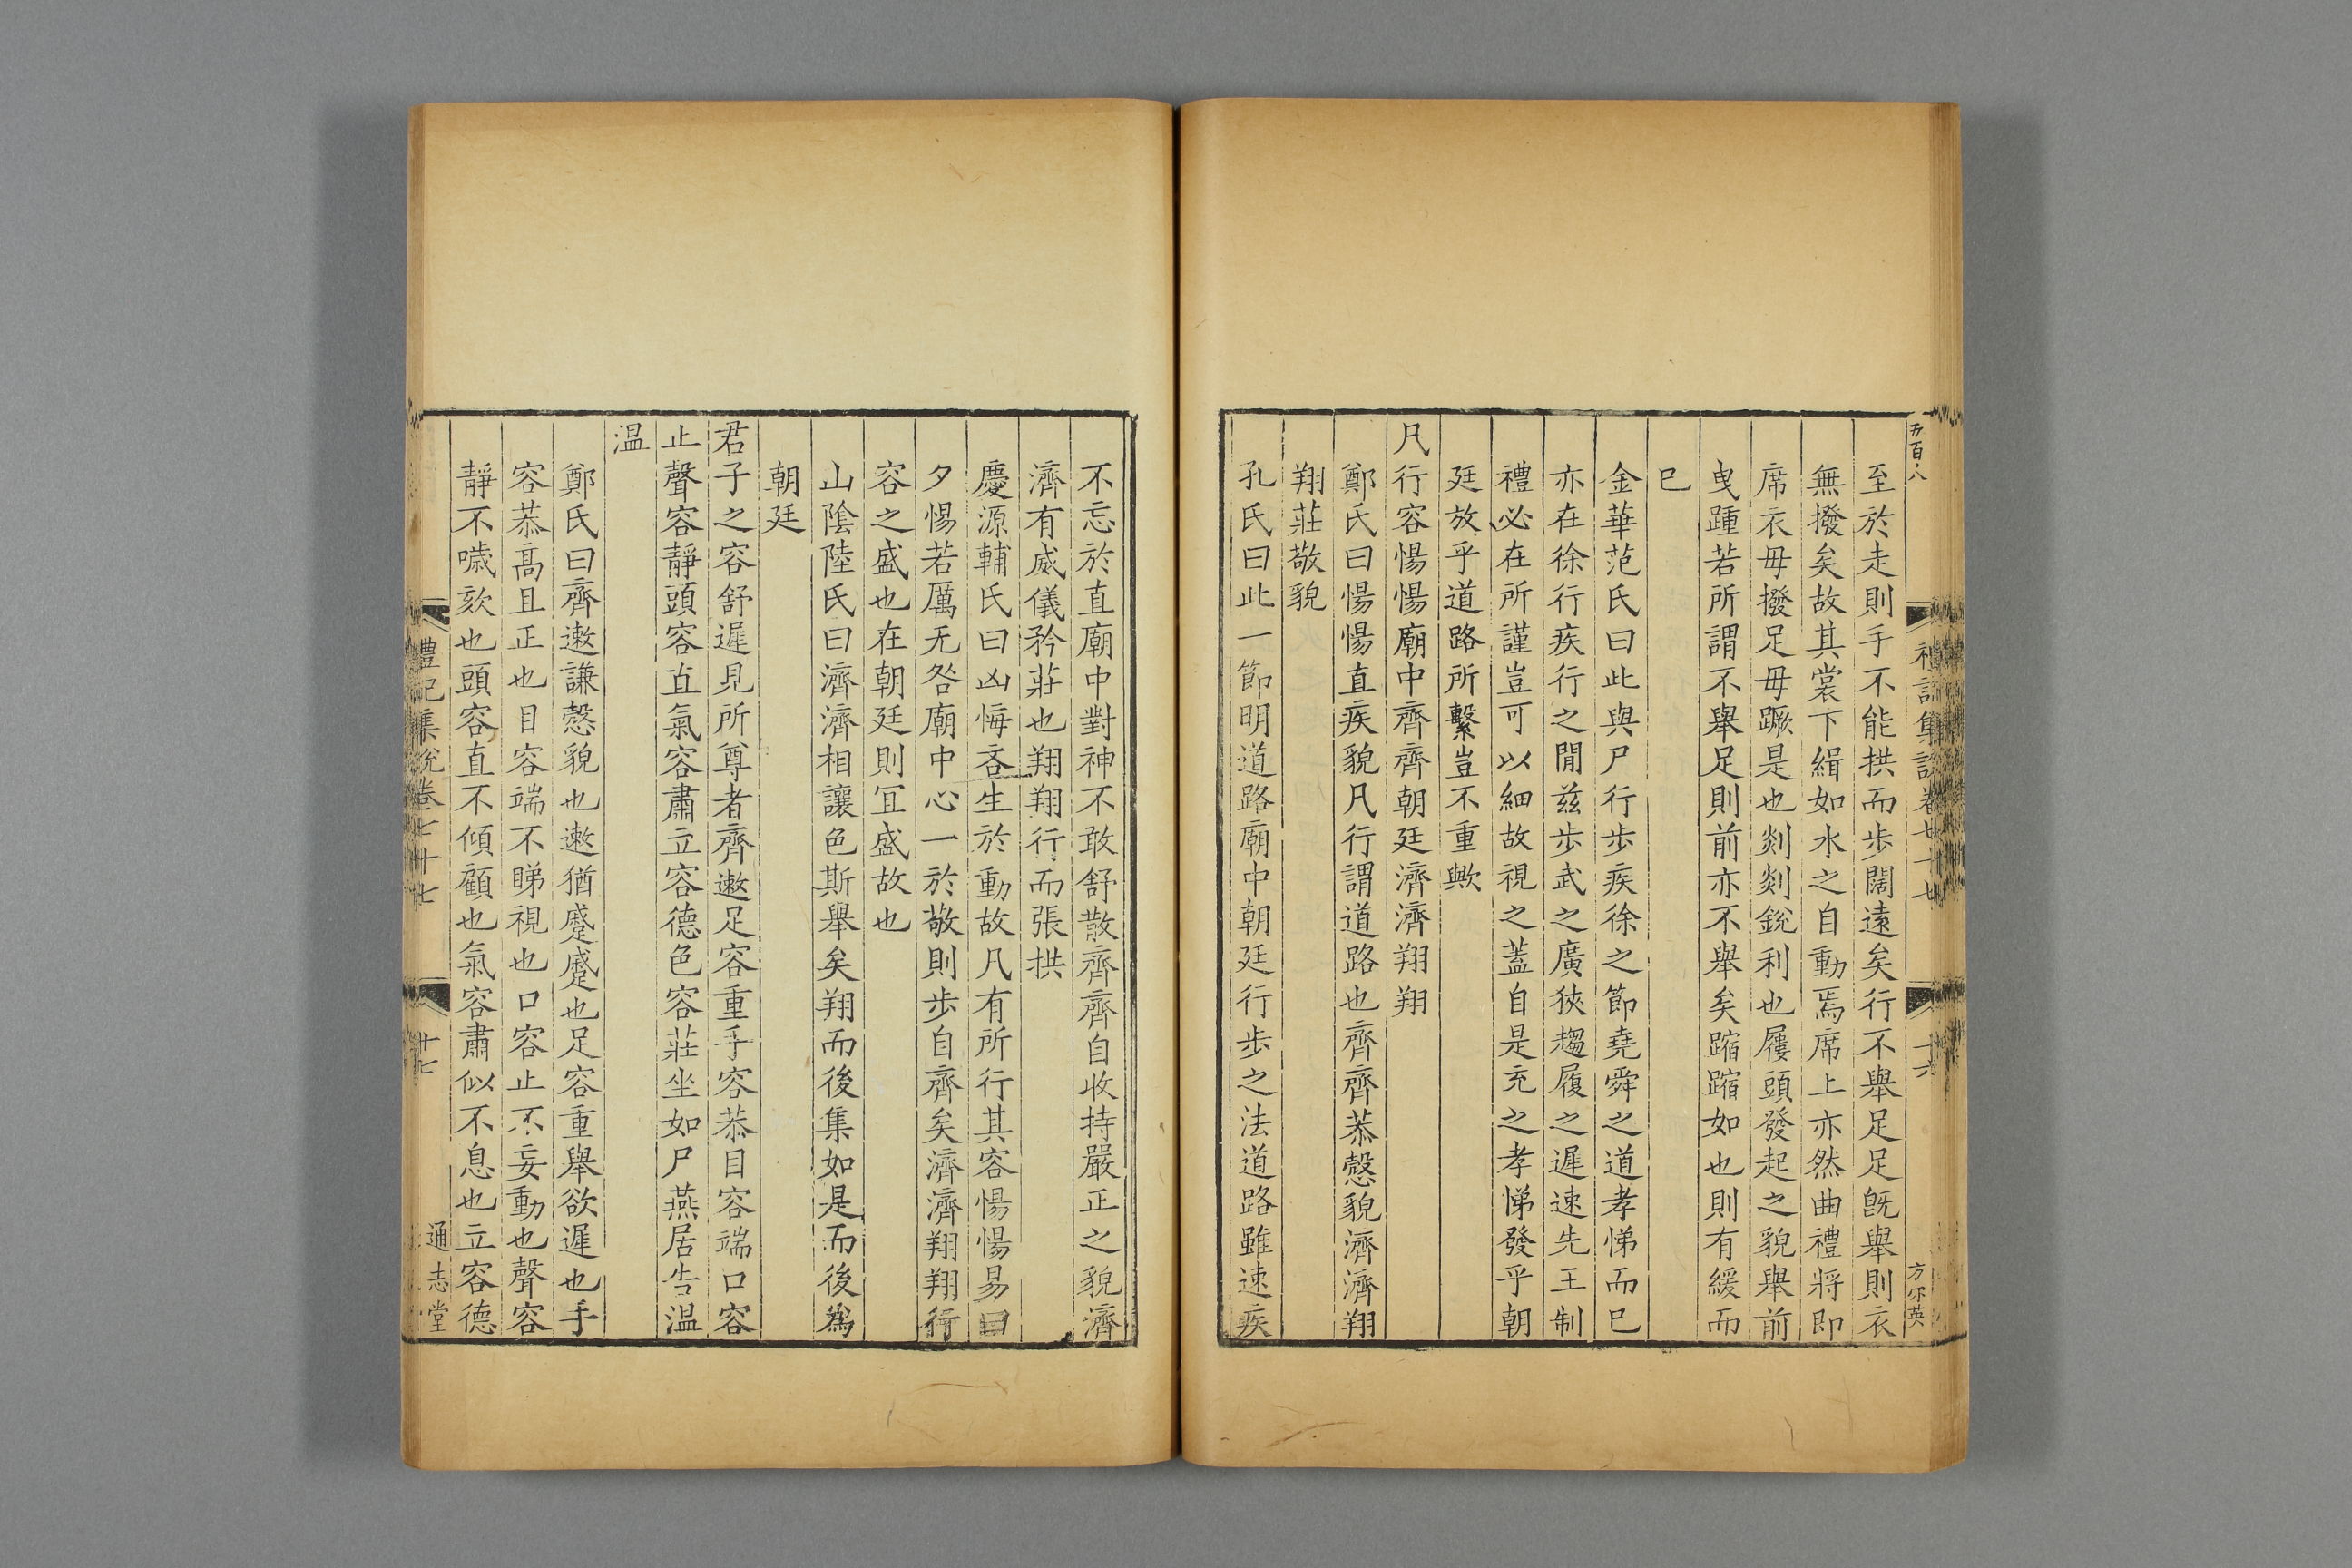 五百八
禮記集說卷七十七
十六
方尔英
至於走則手不能拱而步闊遠矣行不舉足足旣舉則衣
無撥矣故其裳下緝如水之自動焉席上亦然曲禮將即
席衣毋撥足毋蹶是也剡剡銳利也屨頭發起之貌舉前
曳踵若所謂不舉足則前亦不舉矣蹜蹜如也則有緩而
已
金華范氏曰此與尸行步疾徐之節堯舜之道孝悌而已
亦在徐行疾行之閒兹步武之廣狹趨履之遲速先王制
禮必在所謹豈可以細故視之蓋自是充之孝悌發乎朝
廷放乎道路所繫豈不重歟
凡行容愓愓廟中齊齊朝廷濟濟翔翔
鄭氏曰愓愓直疾貌凡行謂道路也齊齊恭慤貌濟濟翔
翔莊敬貌
孔氏曰此一節明道路廟中朝廷行步之法道路雖速疾
不忘於直廟中對神不敢舒散齊齊自收持嚴正之貌濟
濟有威儀矜莊也翔翔行而張拱
慶源輔氏曰凶悔吝生於動故凡有所行其容愓愓易曰
夕惕若厲无咎廟中心一於敬則步自齊矣濟濟翔翔行
容之盛也在朝廷則宜盛故也
山隂陸氏曰濟濟相讓色斯舉矣翔而後集如是而後爲
朝廷
君子之容舒遲見所尊者齊遬足容重手容恭目容端口容
止聲容靜頭容直氣容肅立容德色容莊坐如尸燕居告温
温
鄭氏曰齊遬謙慤貌也遬猶蹙蹙也足容重舉欲遲也手
容恭高且正也目容端不睇視也口容止不妄動也聲容
靜不噦欬也頭容直不傾顧也氣容肅似不息也立容德
禮記集說卷七十七
十七
通志堂